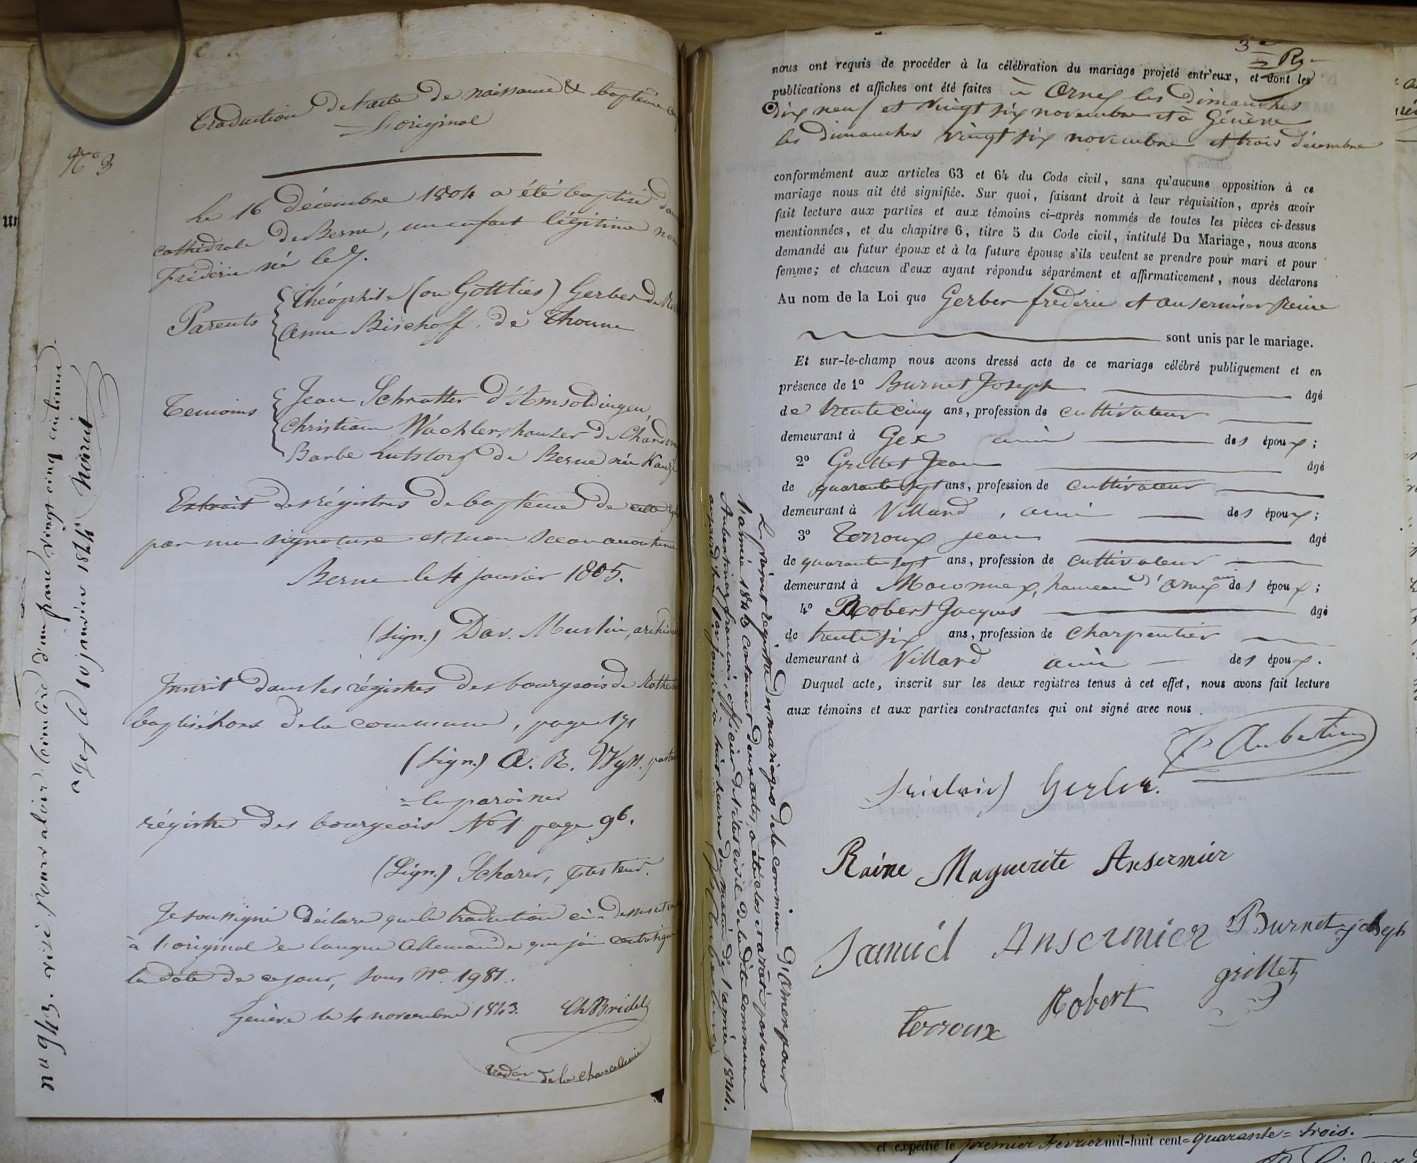 Traduction de l'acte de naissance & baptême
l'original
No 3
Le 16 décembre 1804 a été baptisé dans
cathédrale de Berne, un enfant légitime
Frédéric né le 7.
Parents
Théophile (ou Gottlieb) Gerber de
Anne Bischoff, de Thoune
Temoins
Jean Schratter d'Amsoldingen,
Christian Wächler,
Barbe de Berne née
Extrait des régistres de baptême de
par ma signature et mon
Berne le 4 janvier 1805.
(sign.) Dav. Muslin,
Inscrit dans les régistres des bourgeois de
de la commune, page 171
(sign.) A. R. Wyss.
régistre des bourgeois No 1 page 96.
(sign.) Scharer, pasteur.
Je soussigné déclare que la traduction ci-dessus
à l'original en langue Allemande que j'ai
la date de ce jour, sous No 1981.
Genève le 4 novembre 1843. Ch Bridel
de la chancellerie
no 943. visé pour valoir timbre d'un franc vingt cinq centimes
à Gex le 10 janvier 1844
3e
nous ont requis de procéder à la célébration du mariage projeté entr'eux, et dont les
publications et affiches ont été faites à Ornex les dimanches
dix neuf et vingt six novembre et à Génève
les dimanches vingt six novembre et trois décembre
conformément aux articles 63 et 64 du Code civil, sans qu'aucune opposition à ce
mariage nous ait été signifiée. Sur quoi, faisant droit à leur réquisition, après avoir
fait lecture aux parties et aux témoins ci-après nommés de toutes les pièces ci-dessus
mentionnées, et du chapitre 6, titre 5 du Code civil, intitulé Du Mariage, nous avons
demandé au futur époux et à la future épouse s'ils veulent se prendre pour mari et pour
femme; et chacun d'eux ayant répondu séparément et affirmativement, nous déclarons
Au nom de la Loi que Gerber frédéric et ansermier Reine
sont unis par le mariage.
Et sur-le-champ nous avons dressé acte de ce mariage célébré publiquement et en
présence de 1° Burnet Joseph âgé
de trente cinq ans, profession de cultivateur
demeurant à Gex ami des époux;
2° Grillet Jean âgé
de quarante sept ans, profession de cultivateur
demeurant à Villard, ami des époux;
3° Terroux jean âgé
de quarante sept ans, profession de cultivateur
demeurant à Maconnex, hameau d'Ornex ami des époux;
4° Robert Jacques âgé
de trente six ans, profession de charpentier
demeurant à Villard ami des époux.
Duquel acte, inscrit sur les deux registres tenus à cet effet, nous avons fait lecture
aux témoins et aux parties contractantes qui ont signé avec nous
Aubertin
Friedrich Gerber.
Raine Maguerite Ansermier
Samuel Ansermier Burnet joseph
Terroux Robert grillet
Le présent registre des mariages de la commune d'Ornex pour
l'année 1843 contenant deux actes, a été clos et arrêté par nous
Aubertin françois, officier de l'état civil de la dite commune
et expédié le premier février mil-huit cent=quarante=trois.